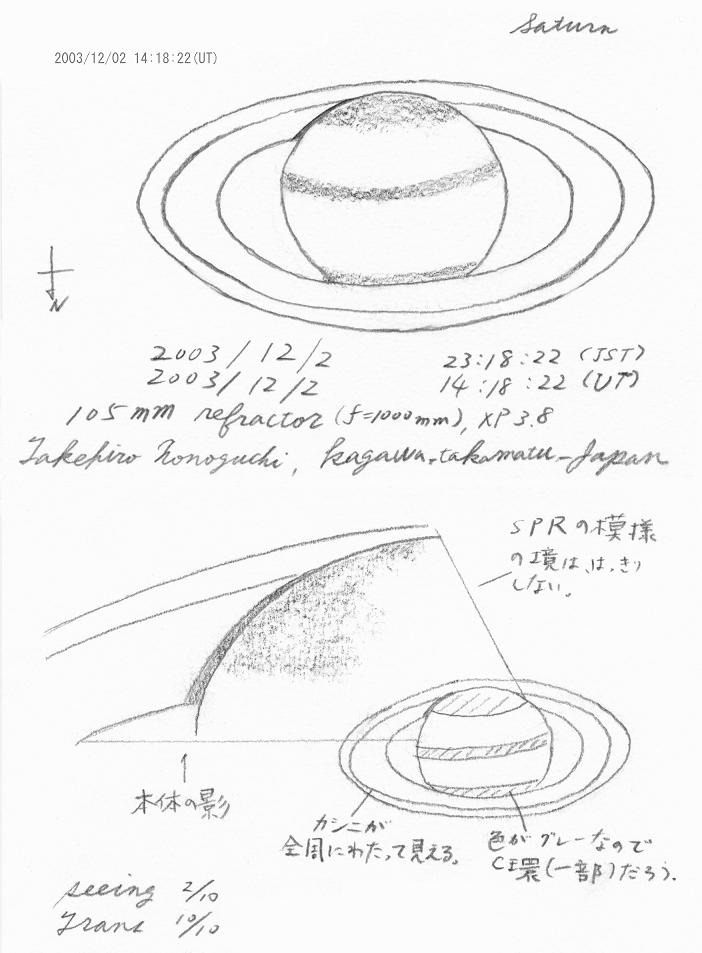 Saturn
2003/12/02 14:18:22(UT)
N
2003/12/2 23:18:22 (JST)
2003/12/2 14:18:22 (UT)
105mm refractor (f=1000mm), XP3.8
Takehiro Nonoguchi, Kagawa-takamatu-Japan
SPRの模様
の境は、はっきり
しない。
本体の影
カシニが
全周にわたって見える。
色がグレーなので
C環(一部)だろう.
seeing 2/10
Trans 10/10